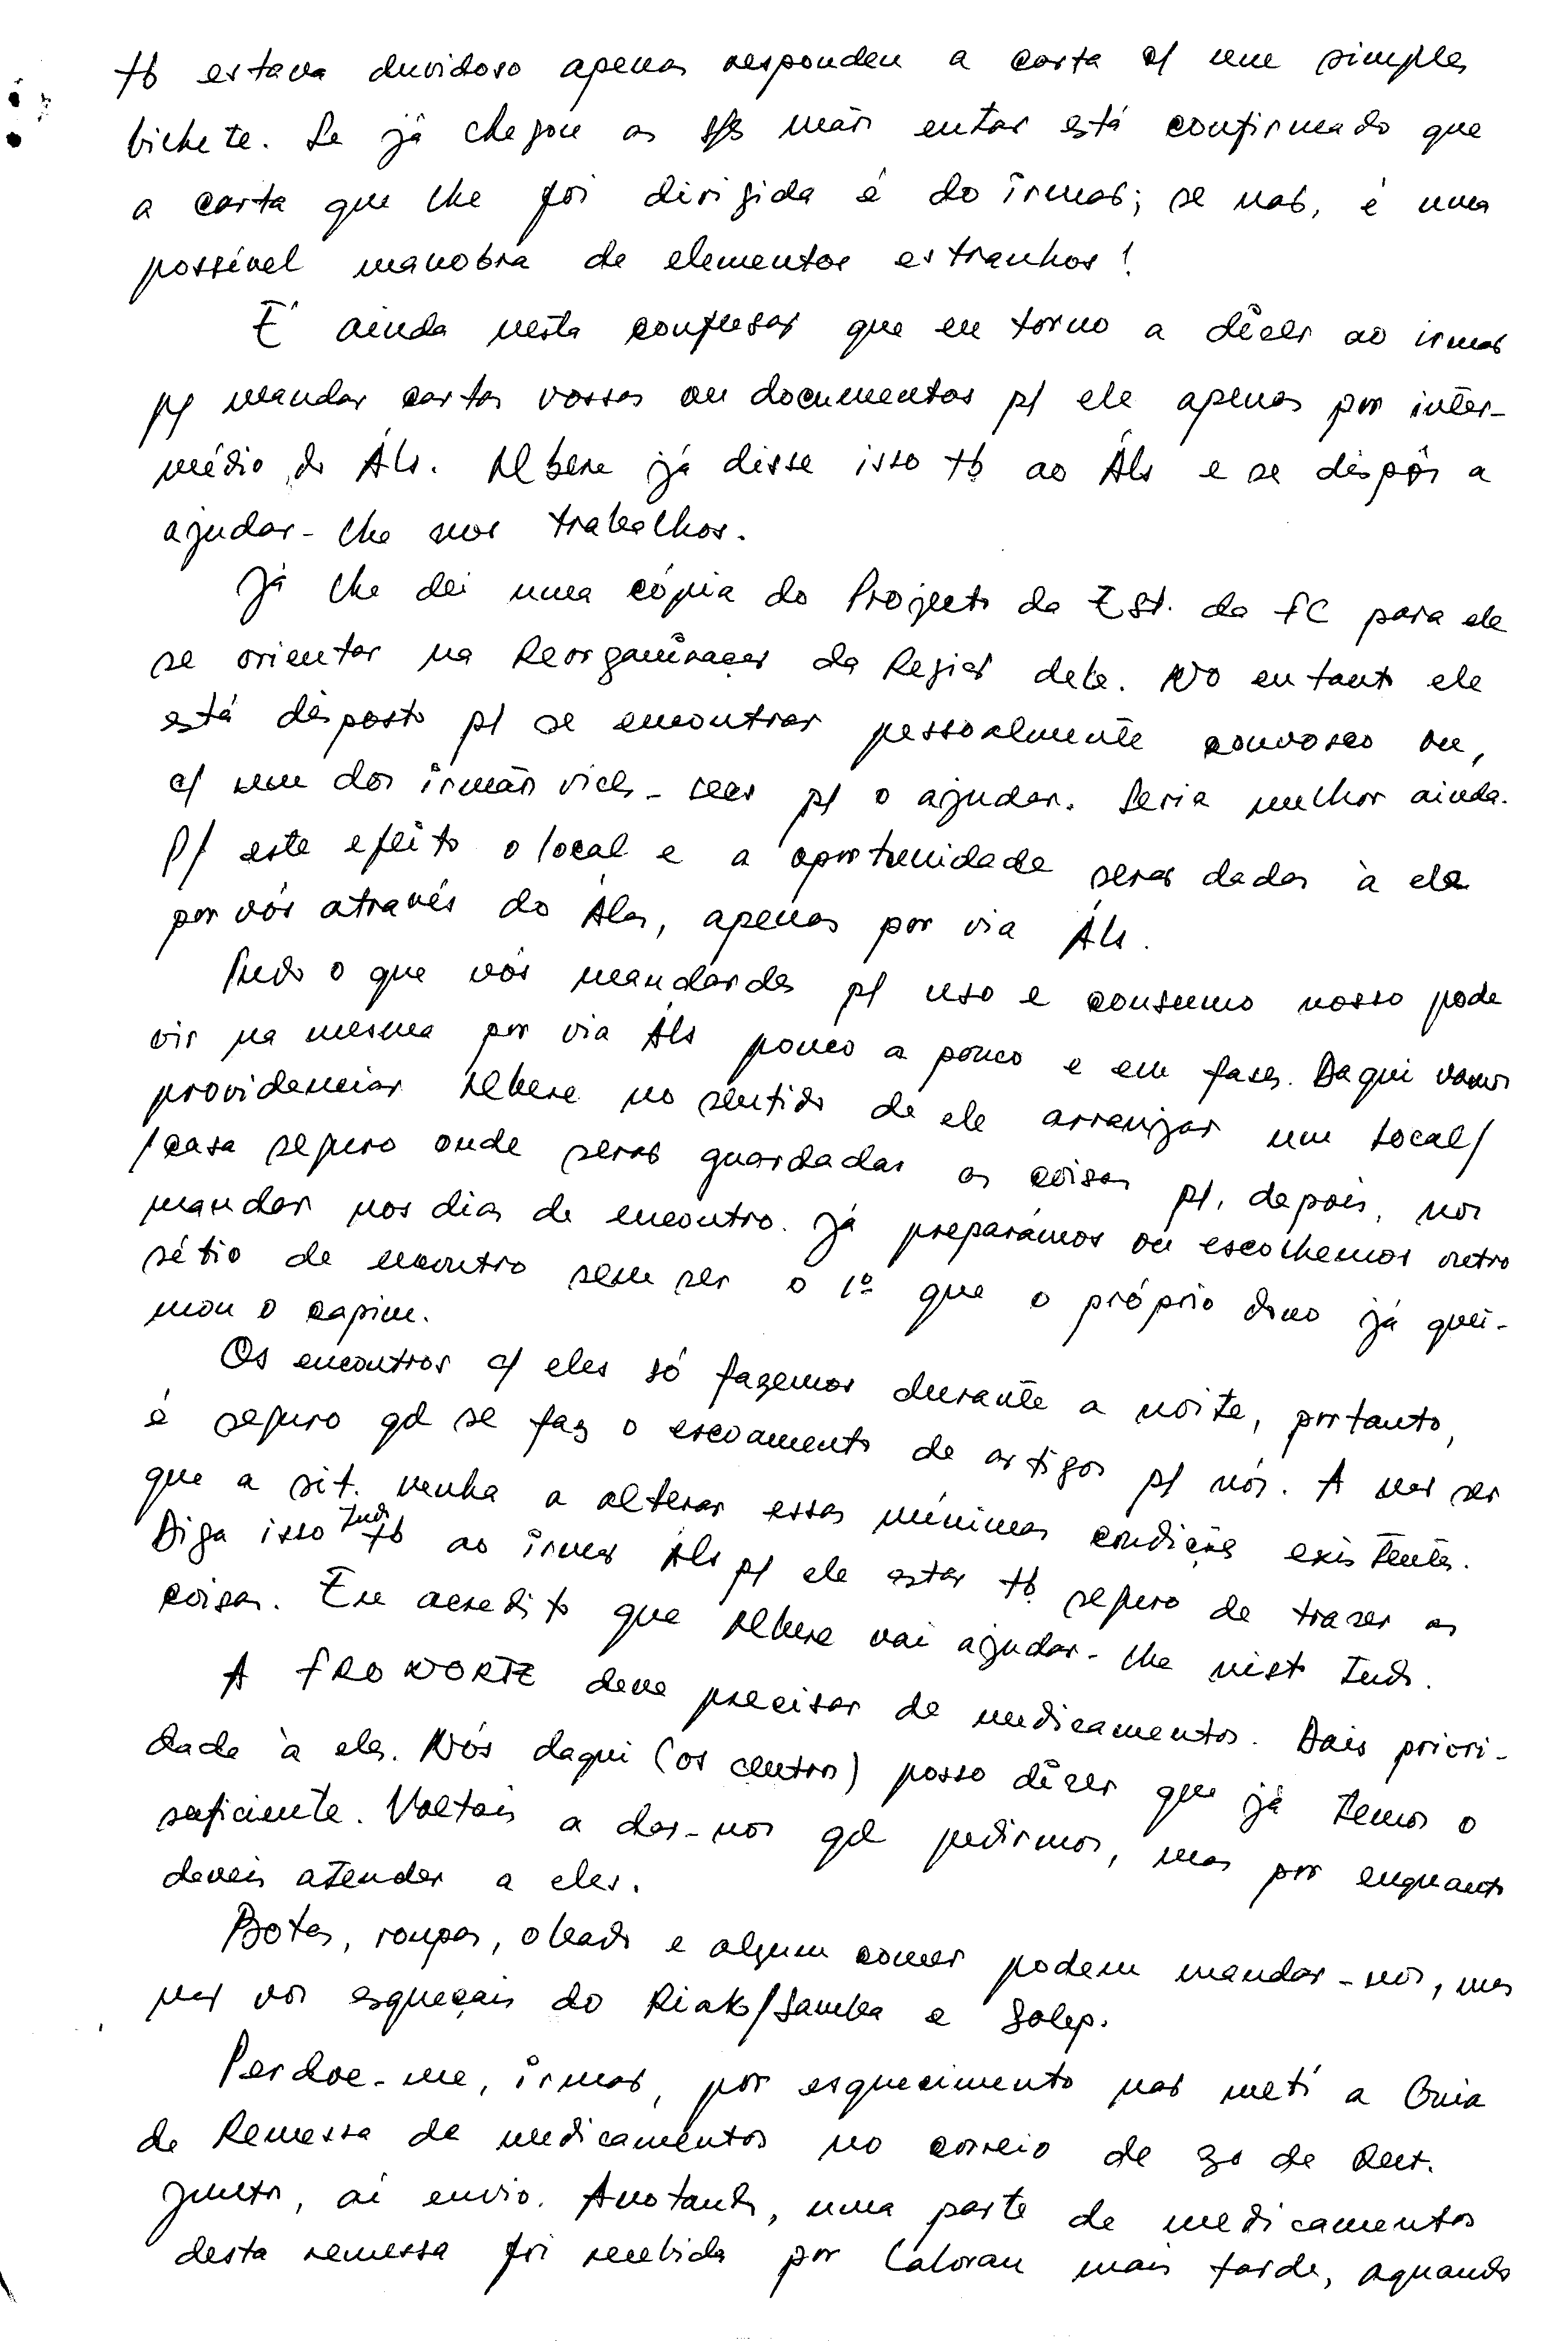 tb estava duvidoso apenas respondeu a carta c/ um simples
bilhete. Se já chegou as s/s mãos entao está confirmado que
a carta que lhe foi dirigida é do irmao; se nao, é uma
possível manobra de elementos estranhos!
É ainda nesta confusao que eu torno a dizer ao irmao
p/ mandar cartas vossas ou documentos p/ ele apenas por inter-
médio do Áls. Albere já disse isso tb ao Áls e se dispôs a
ajudar-lhe nos trabalhos.
Já lhe dei uma cópia do Projecto da Est. da FC para ele
se orientar na Reorganizaçao da Regiao dele. No entanto ele
está disposto p/ se encontrar pessoalmente convosco ou,
c/ um dos irmãos vices-secs p/ o ajudar. Seria melhor ainda.
P/ este efeito o local e a oportunidade serao dadas à ele
por vós através do Álas, apenas por via Áls.
Tudo o que vós mandardes p/ uso e consumo nosso pode
vir na mesma por via Áls pouco a pouco e em fases. Daqui vamos
providenciar Albere no sentido de ele arranjar um local/
/casa seguro onde serao guardadas as coisas p/, depois, nos
mandar nos dias de encontro. Já preparámos ou escolhemos outro
sítio de encontro sem ser o 1º que o próprio dono já quei-
mou o capim.
Os encontros c/ eles só fazemos durante a noite, portanto,
é seguro qd se faz o escoamento de artigos p/ nós. A nao ser
que a sit. venha a alterar essas mínimas condições existentes.
Diga isso tudo tb ao irmao Áls p/ ele estar tb seguro de trazer as
coisas. Eu acredito que Albere vai ajudar-lhe nisto tudo.
A FRONORTE deve precisar de medicamentos. Dais priori-
dade à eles. Nós daqui (os centros) posso dizer que já temos o
suficiente. Voltais a dar-nos qd pedirmos, mas por enquanto
deveis atender a eles.
Botas, roupas, oleado e algum comer podem mandar-nos, mas
nao vos esqueçais do Riak/Samba e Solep.
Perdoe-me, irmao, por esquecimento nao meti a Guia
de Remessa de medicamentos no correio de 30 de Out.
Junto, aí envio. Anotando, uma parte de medicamentos
desta remessa foi recebida por Laloran mais tarde, aquando